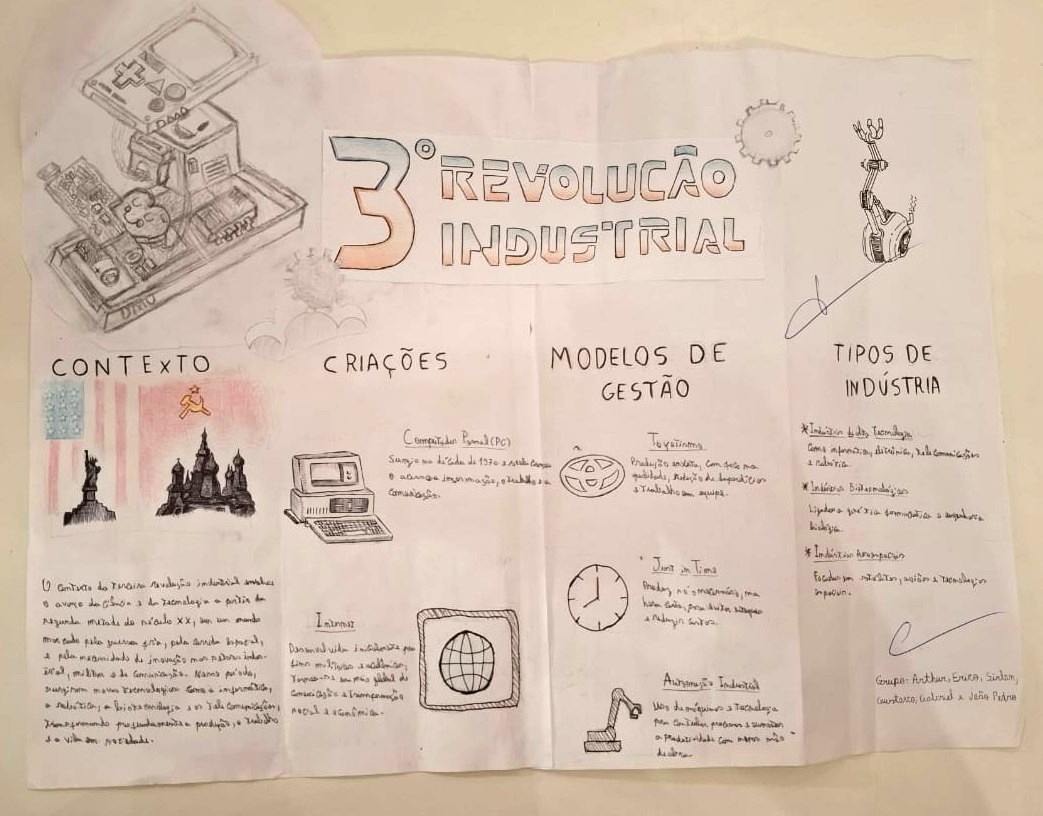 3º REVOLUCÃO
INDUSTRIAL
CONTEXTO
O contexto da terceira revolução industrial envolve
o avanço da ciência e da tecnologia a partir da
segunda metade do século XX, em um mundo
marcado pela guerra fria, pela corrida espacial,
e pela necessidade de inovação nos setores indus-
trial, militar e de comunicação. Nesse período,
surgiram novas tecnologias como a informática,
a robótica, a biotecnologia e as telecomunicações,
transformando profundamente a produção, o trabalho
e a vida em sociedade.
CRIAÇÕES
Computador Pessoal (PC)
Surgiu na década de 1970 e
o acesso a informação, o trabalho e a
comunicação.
Internet
Desenvolvida inicialmente para
fins militares e acadêmicos,
tornou-se um meio global de
comunicação e transformação
social e econômica.
MODELOS DE
GESTÃO
Toyotismo
Produção enxuta, com foco na
qualidade, redução de desperdícios
e trabalho em equipe.
Just in Time
Produz só o necessário, na
hora certa, para evitar estoques
e reduzir custos.
Automação Industrial
Uso de máquinas e tecnologia
para controlar processos e aumentar
a produtividade com menos mão
de obra.
TIPOS DE
INDÚSTRIA
* Indústrias de Alta Tecnologia
Como informática, eletrônica, telecomunicações
e robótica.
* Indústrias Biotecnológicas
Ligadas a farmacêutica e engenharia
biológica.
* Indústrias Aeroespaciais
Focadas em satélites, aviões e tecnologias
espaciais.
Grupo: Arthur, Erico,
Gustavo, Gabriel e João Pedro